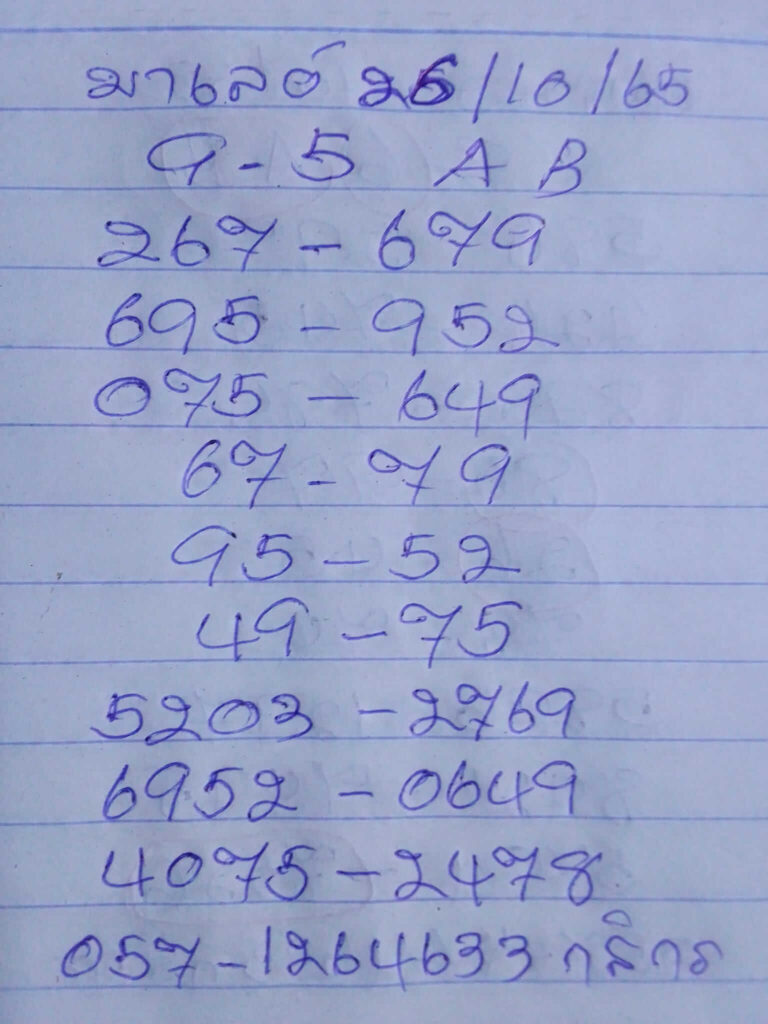 มาเลย์ 26/10/65
9-5 A B
267 - 679
695 - 952
075 - 649
67 - 79
95 - 52
49 - 75
5203 - 2769
6952 - 0649
4075 - 2478
057-1264633